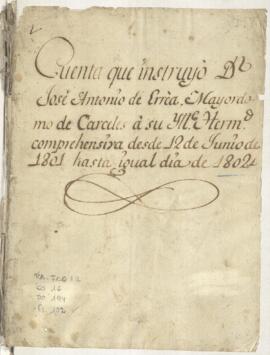 Cuenta que instruyò Dn
José Antonio de Errèa, Mayordo-
mo de Carceles à su Me. Hermd
comprehensiva desde 12 de Junio de
1801 hasta igual dia de 1802